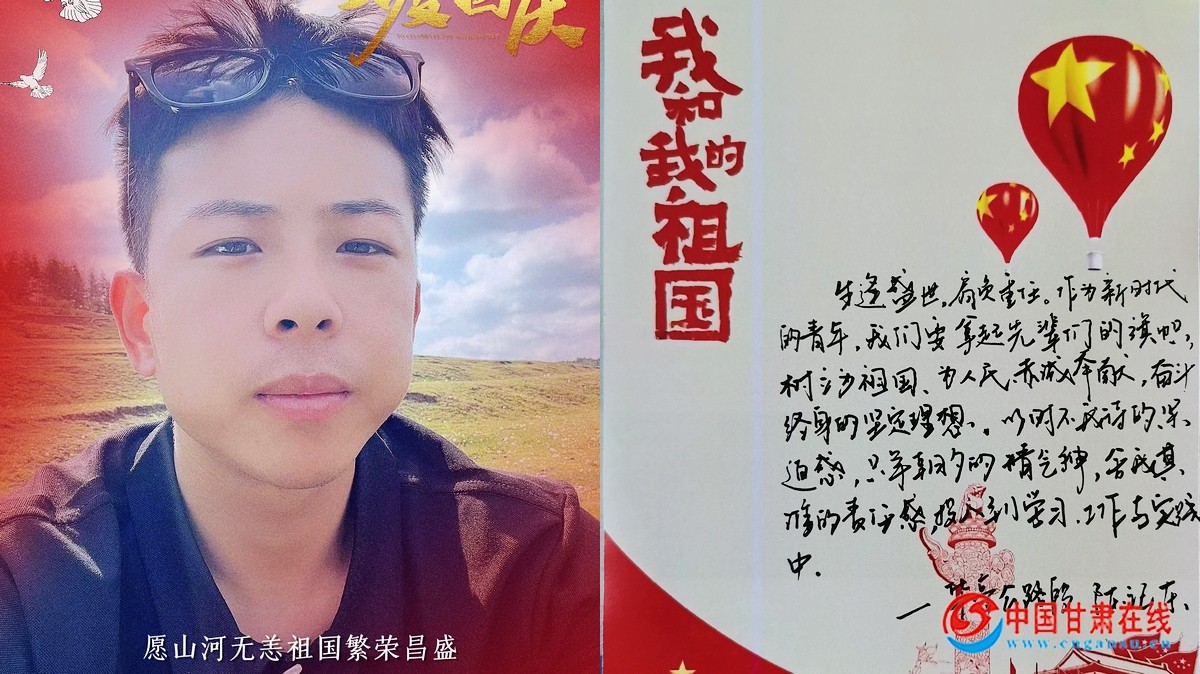 国庆
愿山河无恙祖国繁荣昌盛
我
和
我的
祖
国
生逢盛世，肩负重任。作为新时代
的青年，我们要拿起先辈们的旗帜，
树立为祖国、为人民赤诚奉献，奋斗
终身的坚定理想。以时不我待的紧
迫感，只争朝夕的精气神，舍我其
谁的责任感，投入到学习、工作与实践
中。
公路段
中国甘肃在线
www.cngansu.cn